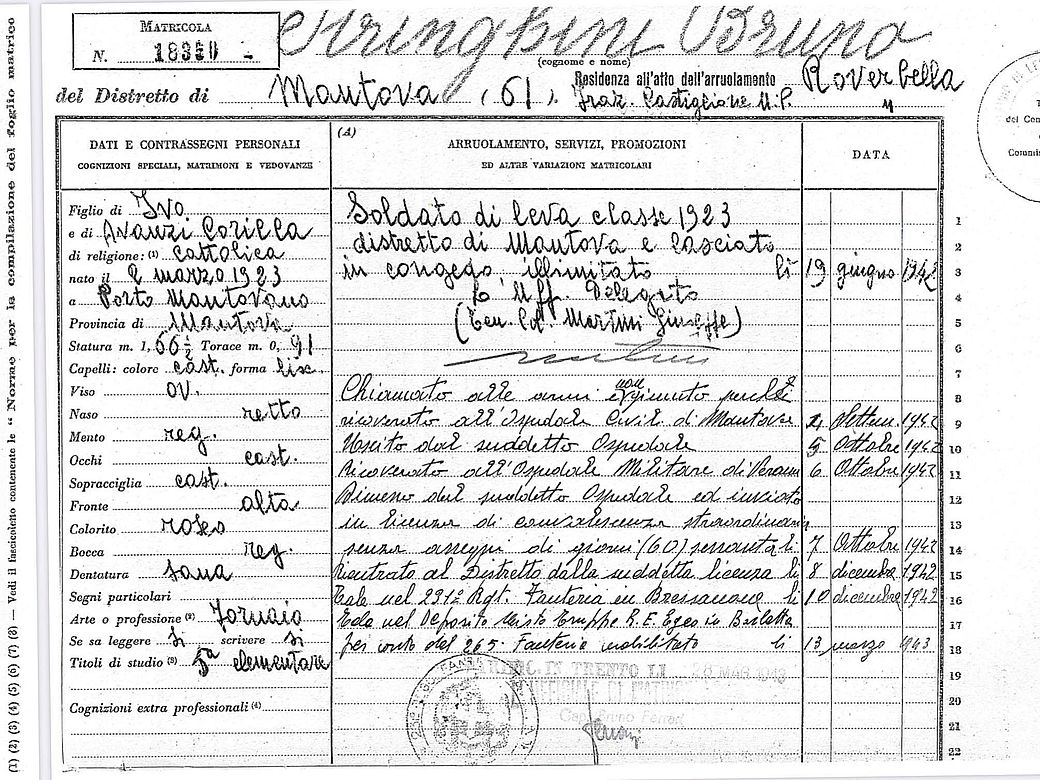 MATRICOLA
N. 18350
Stringhini Bruno
(cognome e nome)
del Distretto di Mantova (61).
Residenza all'atto dell'arruolamento Roverbella
Fraz. Castiglione M.
DATI E CONTRASSEGNI PERSONALI
COGNIZIONI SPECIALI, MATRIMONI E VEDOVANZE
Figlio di Ivo
e di Avanzi Corilla
di religione: (1) cattolica
nato il 2 marzo 1923
a Porto Mantovano
Provincia di Mantova
Statura m. 1, 66½ Torace m. 0, 91
Capelli: colore cast. forma lis.
Viso ov.
Naso retto
Mento reg.
Occhi cast.
Sopracciglia cast.
Fronte alta
Colorito roseo
Bocca reg.
Dentatura sana
Segni particolari
Arte o professione (2) Fornaio
Se sa leggere si scrivere si
Titoli di studio (3) 5a elementare
Cognizioni extra professionali (4)
(A)
ARRUOLAMENTO, SERVIZI, PROMOZIONI
ED ALTRE VARIAZIONI MATRICOLARI
DATA
Soldato di leva classe 1923 1
distretto di Mantova e lasciato 2
in congedo illimitato li 19 giugno 1942 3
L'Uff. Delegato 4
(Ten. Col. Martini Giuseppe) 5
6
7
Chiamato alle armi e non giunto perchè 8
ricoverato all'Ospedale Civil. di Mantova Settem. 1942 9
Uscito dal suddetto Ospedale 5 Ottobre 1942 10
Ricoverato all'Ospedale Militare di Verona 6 Ottobre 1942 11
Dimesso dal suddetto Ospedale ed inviato 12
in licenza di convalescenza straordinaria 13
senza assegni di giorni (60) sessanta li 7 Ottobre 1942 14
Rientrato al Distretto dalla suddetta licenza li 8 dicembre 1942 15
Tale nel 231° Rgt. Fanteria in Bressanone li 10 dicembre 1942 16
Tale nel Deposito Misto Truppe R.E. Egeo in Barletta 17
per conto del 265 Fanteria mobilitato li 13 marzo 1943 18
19
20
21
22
IN TRENTO LI
Cap. Bruno Ferrari
(1) (2) (3) (4) (5) (6) (7) (8) — Vedi il fascicoletto contenente le "Norme per la compilazione del foglio matrico